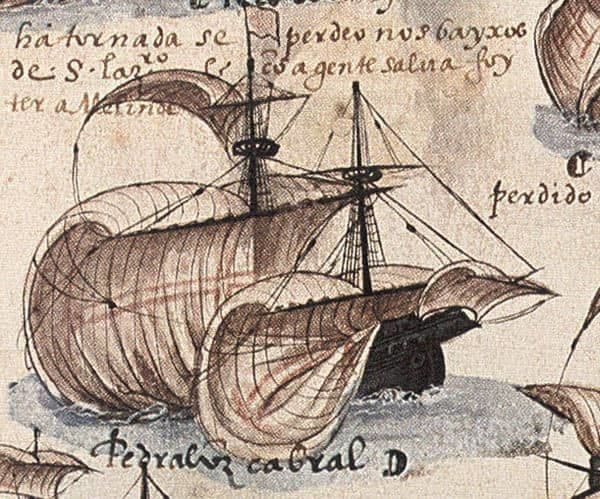 há tornada se perdeo nos bayxos
de S. Lazro e a gente salua foy
ter a Melinde
perdido
Pedraluz cabral D